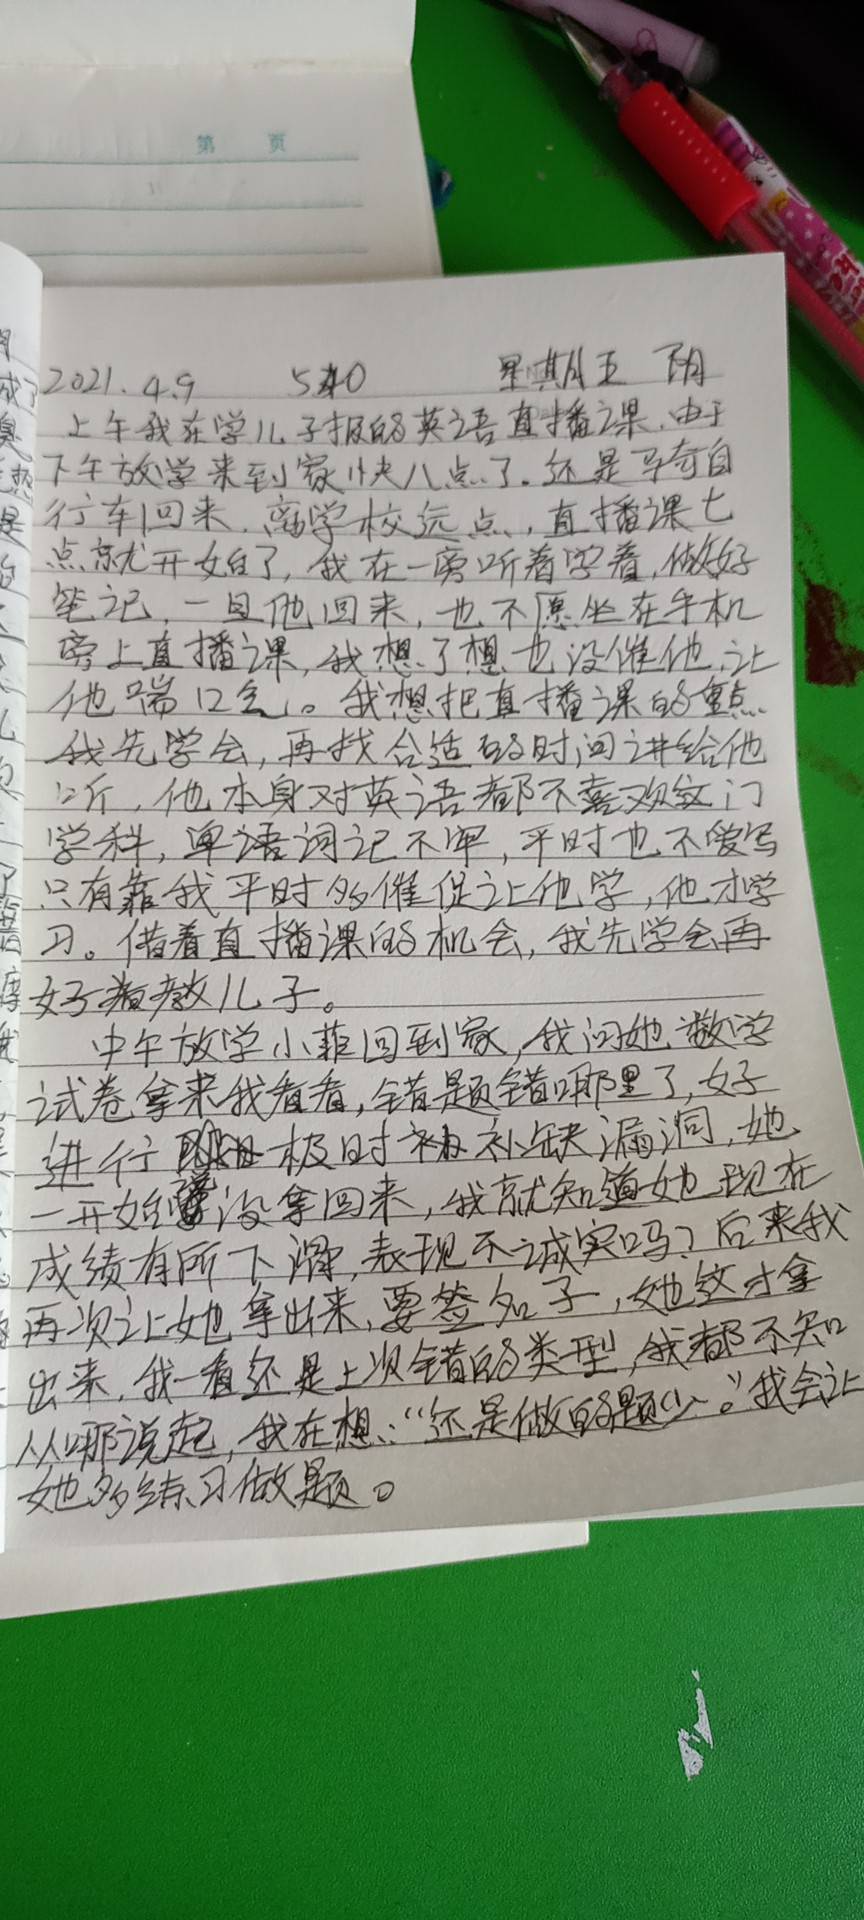 第 页
2021.4.9 540 星期五 阴
上午我在学儿子报的英语直播课,由于
下午放学来到家快八点了.还是马奇自
行车回来.离学校远点,直播课七
点就开始了,我在一旁听着学着,做好
笔记,一旦他回来,也不愿坐在手机
旁上直播课,我想了想也没催他,让
他喘口气。我想把直播课的重点
我先学会,再找合适的时间讲给他
听,他本身对英语都不喜欢这门
学科,单语词记不牢,平时也不爱写
只有靠我平时多催促让他学,他才学
习。借着直播课的机会,我先学会再
好着教儿子。
中午放学小菲回到家,我问她数学
试卷拿来我看看,错题错哪里了,好
进行极时补缺漏洞,她
一开始没拿回来,我就知道她现在
成绩有所下滑,表现不诚实吗?后来我
再次让她拿出来,要签名子,她这才拿
出来,我一看还是上次错的类型,我都不知
从哪说起,我在想:“还是做的题少。”我会让
她多练习做题。